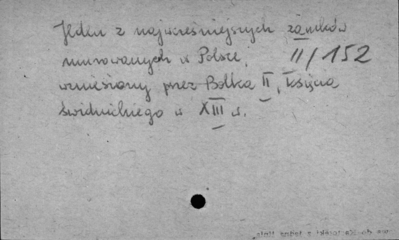 Jeden z najwcześniejszych zamków
murowanych w Polsce, II/152
wzniesiony przez Bolka II, księcia
świdnickiego w XIII w.